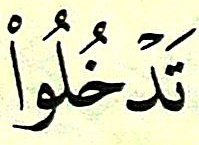 تَدۡخُلُواْ